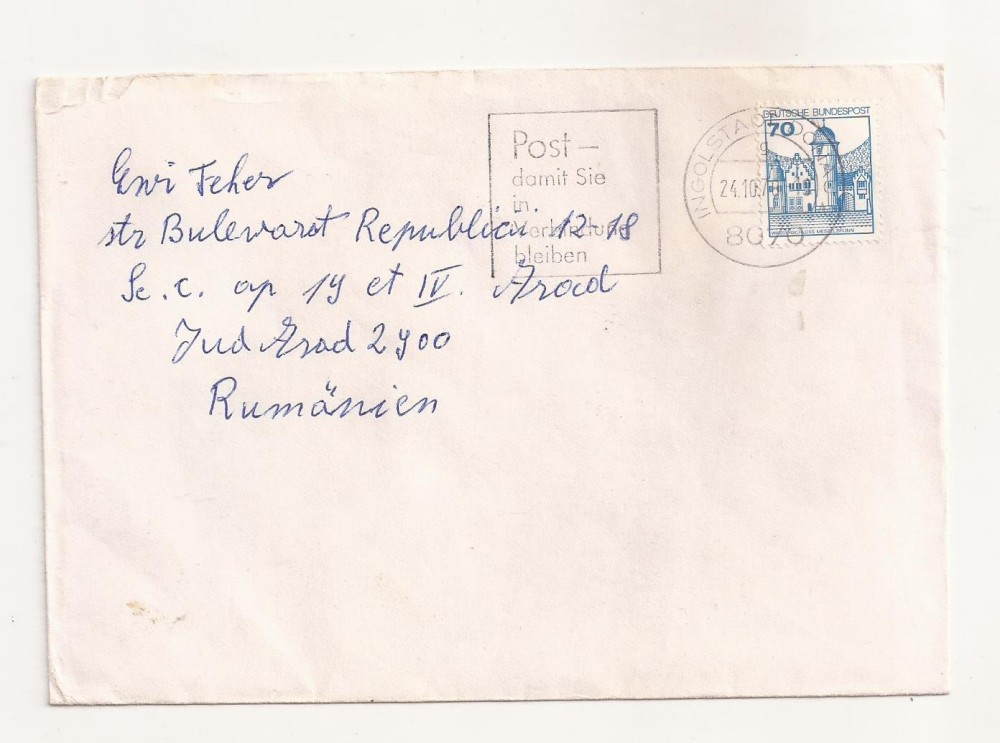 Post –
damit Sie
in
Verbindung
bleiben
INGOLSTADT, DONAU
24.10.7
8070
DEUTSCHE BUNDESPOST
70
WASSERSCHLOSS MESPELBRUNN
Ewi Feher
str Bulevarot Republicii 12-18
Sc. c. ap 19 et IV. Arad
Jud Arad 2900
Rumänien